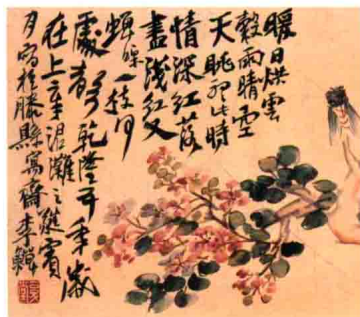 暖日烘雲
穀雨晴空
天眺望此時
情深紅落
盡淺紅又
蟬噪一枝何
處聲乾隆五年歲
在上章涒灘之蕤賓
月寫於滕縣寓齋李鱓